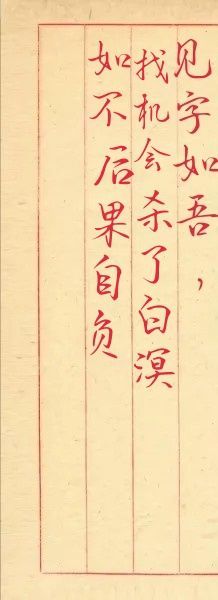 见字如吾，
找机会杀了白溟
如不后果自负